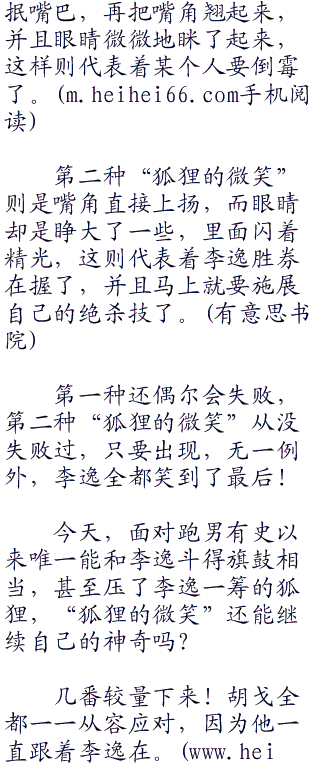 抿嘴巴，再把嘴角翘起来，
并且眼睛微微地眯了起来，
这样则代表着某个人要倒霉
了。(m.heihei66.com手机阅
读)
第二种“狐狸的微笑”
则是嘴角直接上扬，而眼睛
却是睁大了一些，里面闪着
精光，这则代表着李逸胜券
在握了，并且马上就要施展
自己的绝杀技了。(有意思书
院)
第一种还偶尔会失败，
第二种“狐狸的微笑”从没
失败过，只要出现，无一例
外，李逸全都笑到了最后！
今天，面对跑男有史以
来唯一能和李逸斗得旗鼓相
当，甚至压了李逸一筹的狐
狸，“狐狸的微笑”还能继
续自己的神奇吗？
几番较量下来！胡戈全
都一一从容应对，因为他一
直跟着李逸在。(www.hei